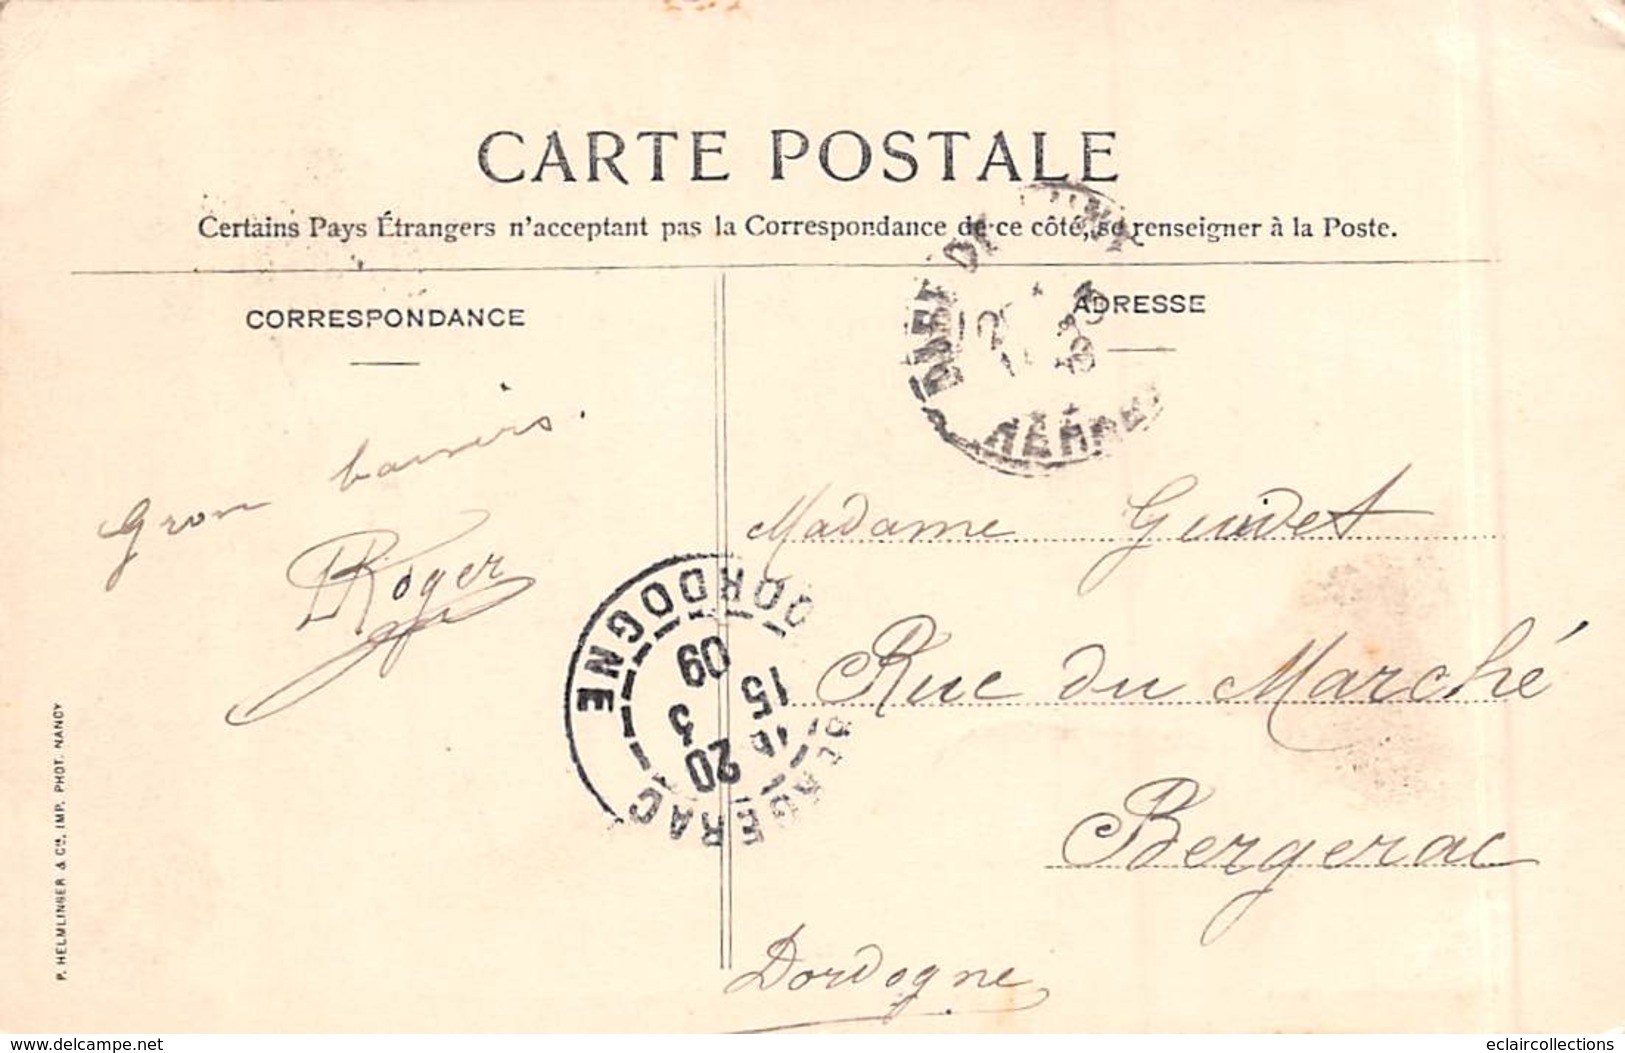 CARTE POSTALE
Certains Pays Étrangers n'acceptant pas la Correspondance de ce côté, se renseigner à la Poste.
CORRESPONDANCE
ADRESSE
Gros baisers.
Roger
Madame Guidet
Rue du Marché
Bergerac
Dordogne
BERGERAC
DORDOGNE
15
20 3
09
P. HELMLINGER & Cie, IMP. PHOT. NANCY
www.delcampe.net
eclaircollections